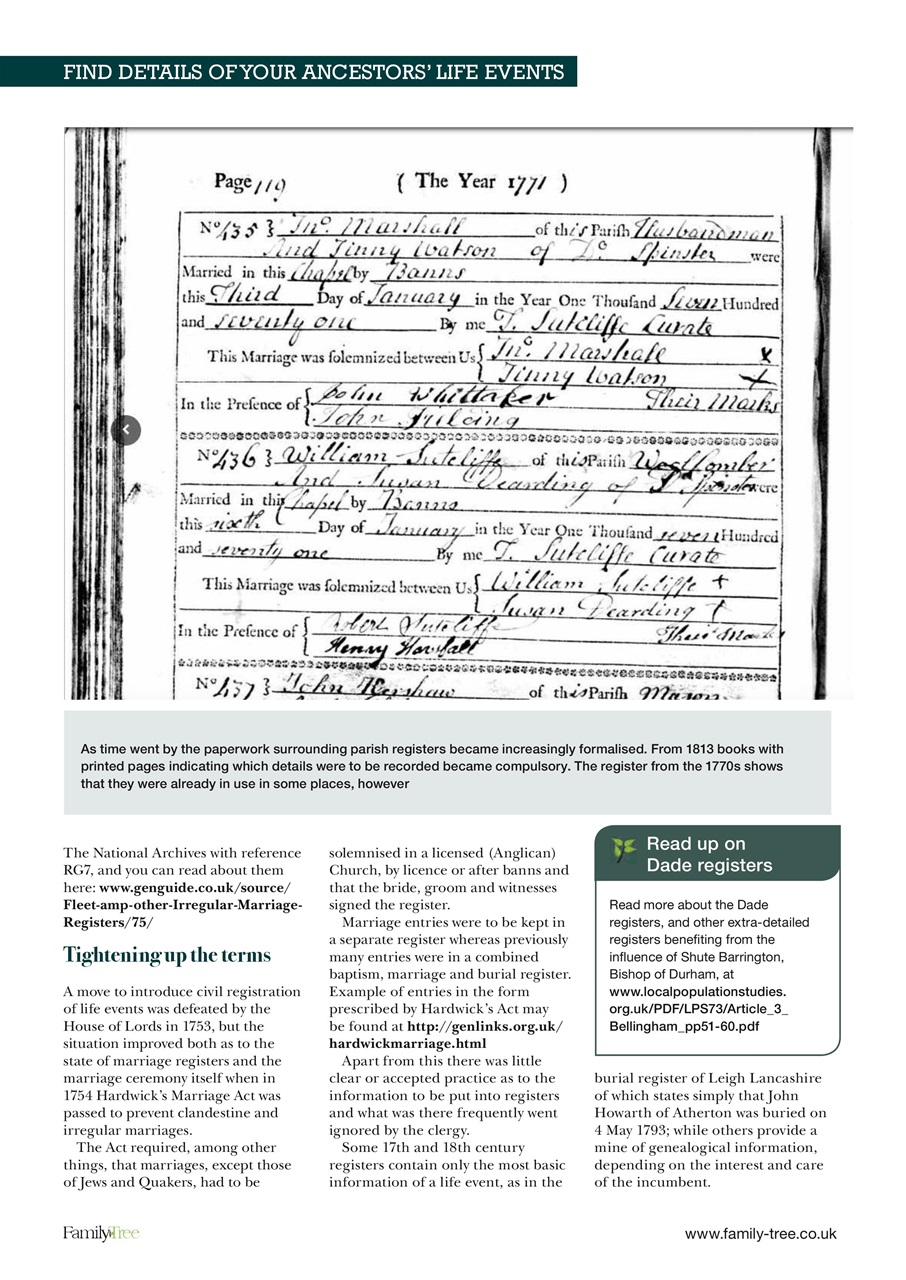 FIND DETAILS OF YOUR ANCESTORS’ LIFE EVENTS
Page 119 ( The Year 1771 )
No 435 } Jno. Marshall of this Parish Husbandman
And Jinny Watson of Do. Spinster were
Married in this Chapel by Banns
this Third Day of January in the Year One Thousand Seven Hundred
and seventy one By me T. Sutcliffe Curate
This Marriage was solemnized between Us { Jno. Marshall x
Jinny Watson +
In the Presence of { John Whittaker Their Marks
John
No 436 } William Sutcliffe of this Parish Woollcomber
And Susan Dearding of Do Spinster were
Married in this Chapel by Banns
this sixth Day of January in the Year One Thousand seven Hundred
and seventy one By me T. Sutcliffe Curate
This Marriage was solemnized between Us { William Sutcliffe +
Susan Dearding +
In the Presence of { Robert Sutcliffe Their Mark
Henry Horsfall
No 437 } John Kershaw of this Parish Mason
As time went by the paperwork surrounding parish registers became increasingly formalised. From 1813 books with
printed pages indicating which details were to be recorded became compulsory. The register from the 1770s shows
that they were already in use in some places, however
The National Archives with reference
RG7, and you can read about them
here: www.genguide.co.uk/source/
Fleet-amp-other-Irregular-Marriage-
Registers/75/
Tightening up the terms
A move to introduce civil registration
of life events was defeated by the
House of Lords in 1753, but the
situation improved both as to the
state of marriage registers and the
marriage ceremony itself when in
1754 Hardwick’s Marriage Act was
passed to prevent clandestine and
irregular marriages.
The Act required, among other
things, that marriages, except those
of Jews and Quakers, had to be
solemnised in a licensed (Anglican)
Church, by licence or after banns and
that the bride, groom and witnesses
signed the register.
Marriage entries were to be kept in
a separate register whereas previously
many entries were in a combined
baptism, marriage and burial register.
Example of entries in the form
prescribed by Hardwick’s Act may
be found at http://genlinks.org.uk/
hardwickmarriage.html
Apart from this there was little
clear or accepted practice as to the
information to be put into registers
and what was there frequently went
ignored by the clergy.
Some 17th and 18th century
registers contain only the most basic
information of a life event, as in the
Read up on
Dade registers
Read more about the Dade
registers, and other extra-detailed
registers benefiting from the
influence of Shute Barrington,
Bishop of Durham, at
www.localpopulationstudies.
org.uk/PDF/LPS73/Article_3_
Bellingham_pp51-60.pdf
burial register of Leigh Lancashire
of which states simply that John
Howarth of Atherton was buried on
4 May 1793; while others provide a
mine of genealogical information,
depending on the interest and care
of the incumbent.
FamilyTree
www.family-tree.co.uk